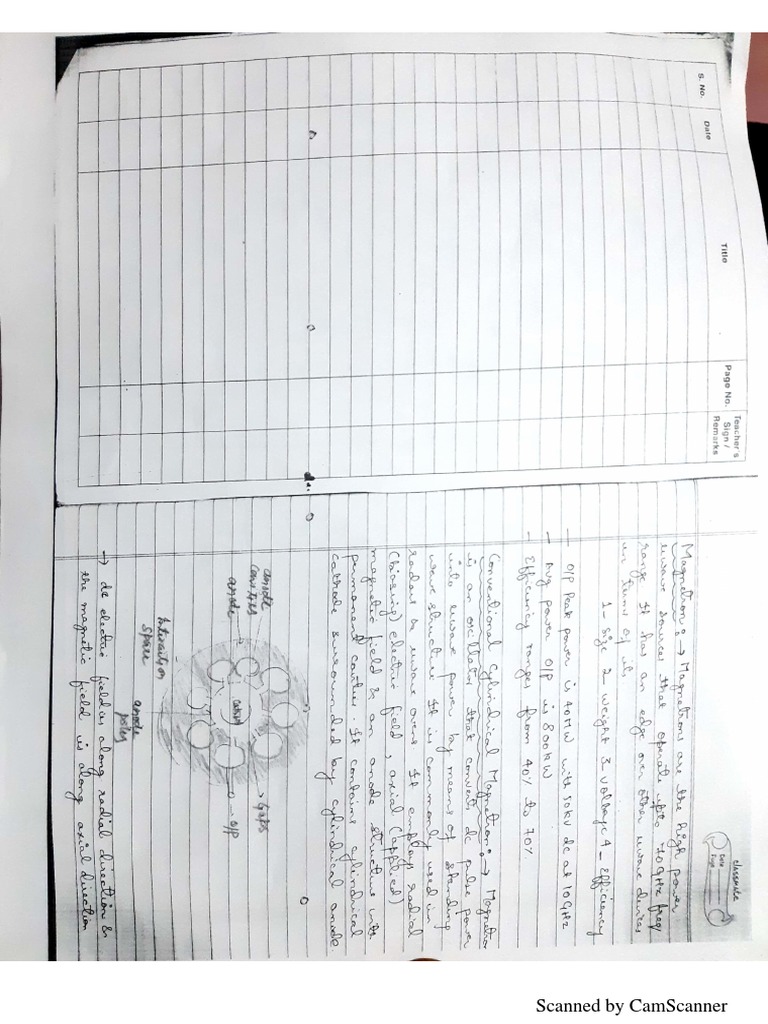 S. No.
Date
Title
Page No.
Teacher's
Sign /
Remarks
classmate
Date
Page
Magnetron :→ Magnetrons are the high power
uwave sources that operate upto 70 GHz freq
range It has an edge over other uwave devices
in terms of its
1- Size 2- weight 3- voltage 4- Efficiency
- O/P Peak power is 40MW with 50kv dc at 10 GHz
- Avg power O/P is 800kW
- Efficiency ranges from 40% to 70%
Conventional Cylindrical Magnetron :→ Magnetron
is an oscillator that converts dc pulse power
into uwave power by means of standing
wave structure It is commonly used in
radars & uwave ovens It employs radial
(biasing) electric field, axial (applied)
magnetic field & an anode structure with
permanent cavities. It contains cylindrical
cathode surrounded by cylindrical anode.
anode
cavities
anode
Gaps
O/P
Interaction
space
anode
poles
→ dc electric field is along radial direction &
the magnetic field is along axial direction
Scanned by CamScanner